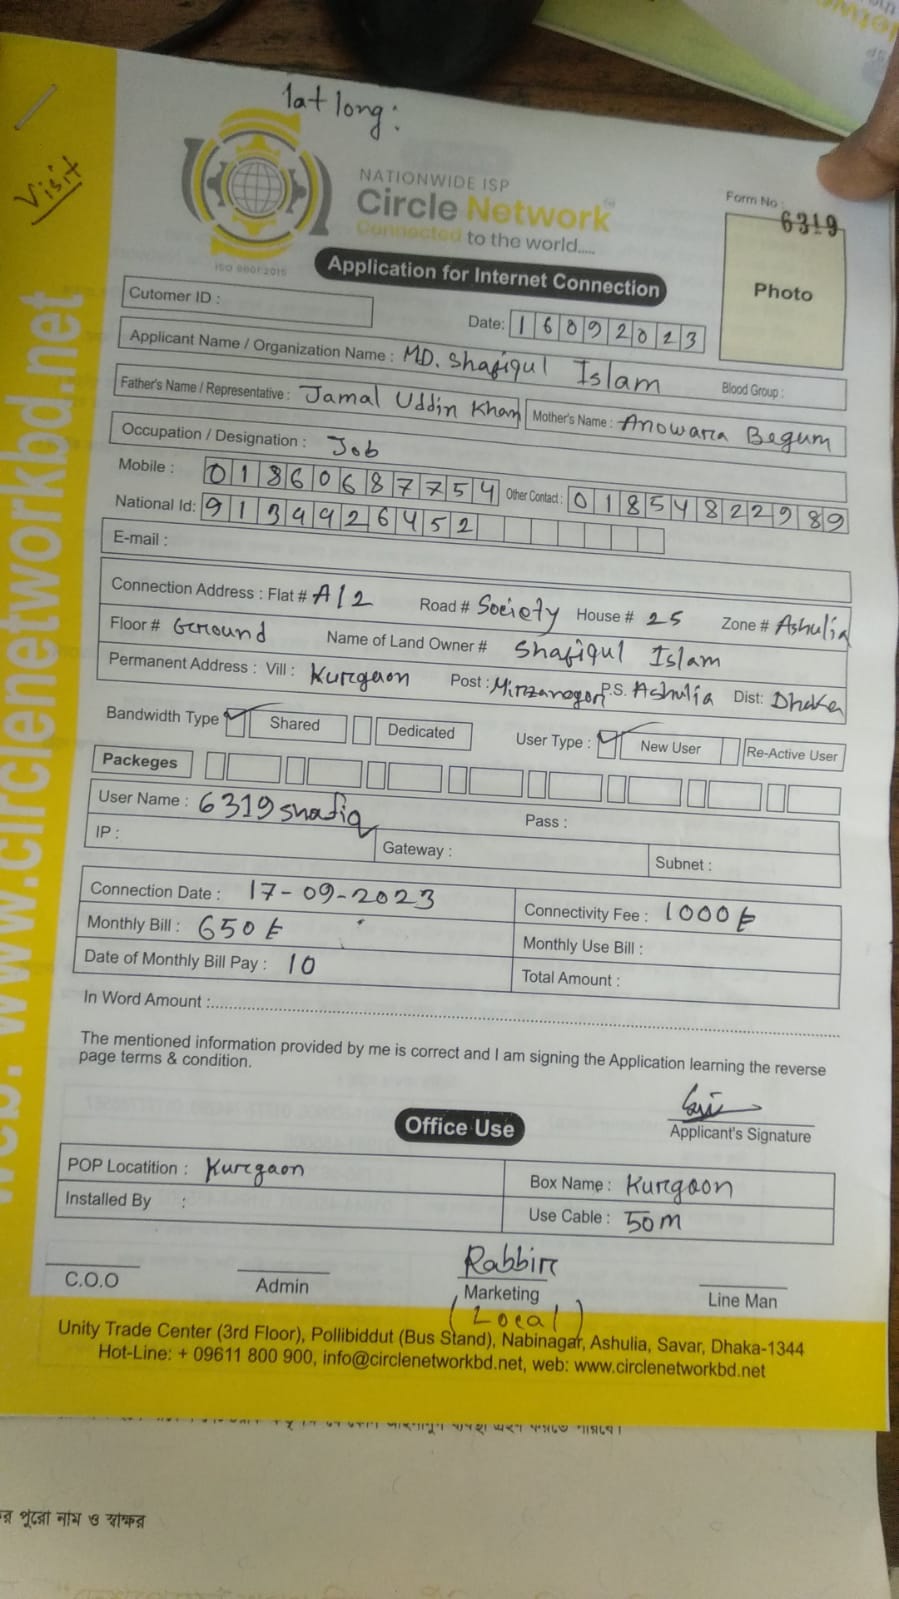 lat long:
Visit
NATIONWIDE ISP
Circle Network
Connected to the world.....
ISO 9001:2015
Form No :
6319
Application for Internet Connection
Photo
Cutomer ID :
Date: 16092023
Applicant Name / Organization Name : MD. Shafiqul Islam Blood Group :
Father's Name / Representative : Jamal Uddin Khan Mother's Name : Anowara Begum
Occupation / Designation : Job
Mobile : 01860687754 Other Contact : 01854822989
National Id: 9139926452
E-mail :
Connection Address : Flat # A/2 Road # Society House # 25 Zone # Ashulia
Floor # Ground Name of Land Owner # Shafiqul Islam
Permanent Address : Vill : Kurgaon Post : Mirzanagor P.S. Ashulia Dist: Dhaka
Bandwidth Type Shared Dedicated User Type : New User Re-Active User
Packeges
User Name : 6319shafiq Pass :
IP : Gateway : Subnet :
Connection Date : 17-09-2023 Connectivity Fee : 1000৳
Monthly Bill : 650৳ Monthly Use Bill :
Date of Monthly Bill Pay : 10 Total Amount :
In Word Amount :
The mentioned information provided by me is correct and I am signing the Application learning the reverse
page terms & condition.
Applicant's Signature
Office Use
POP Locatition : Kurgaon Box Name : Kurgaon
Installed By : Use Cable : 50M
C.O.O Admin Rabbir Marketing Line Man
(Local)
Unity Trade Center (3rd Floor), Pollibiddut (Bus Stand), Nabinagar, Ashulia, Savar, Dhaka-1344
Hot-Line: + 09611 800 900, info@circlenetworkbd.net, web: www.circlenetworkbd.net
web: www.circlenetworkbd.net
পুরো নাম ও স্বাক্ষর